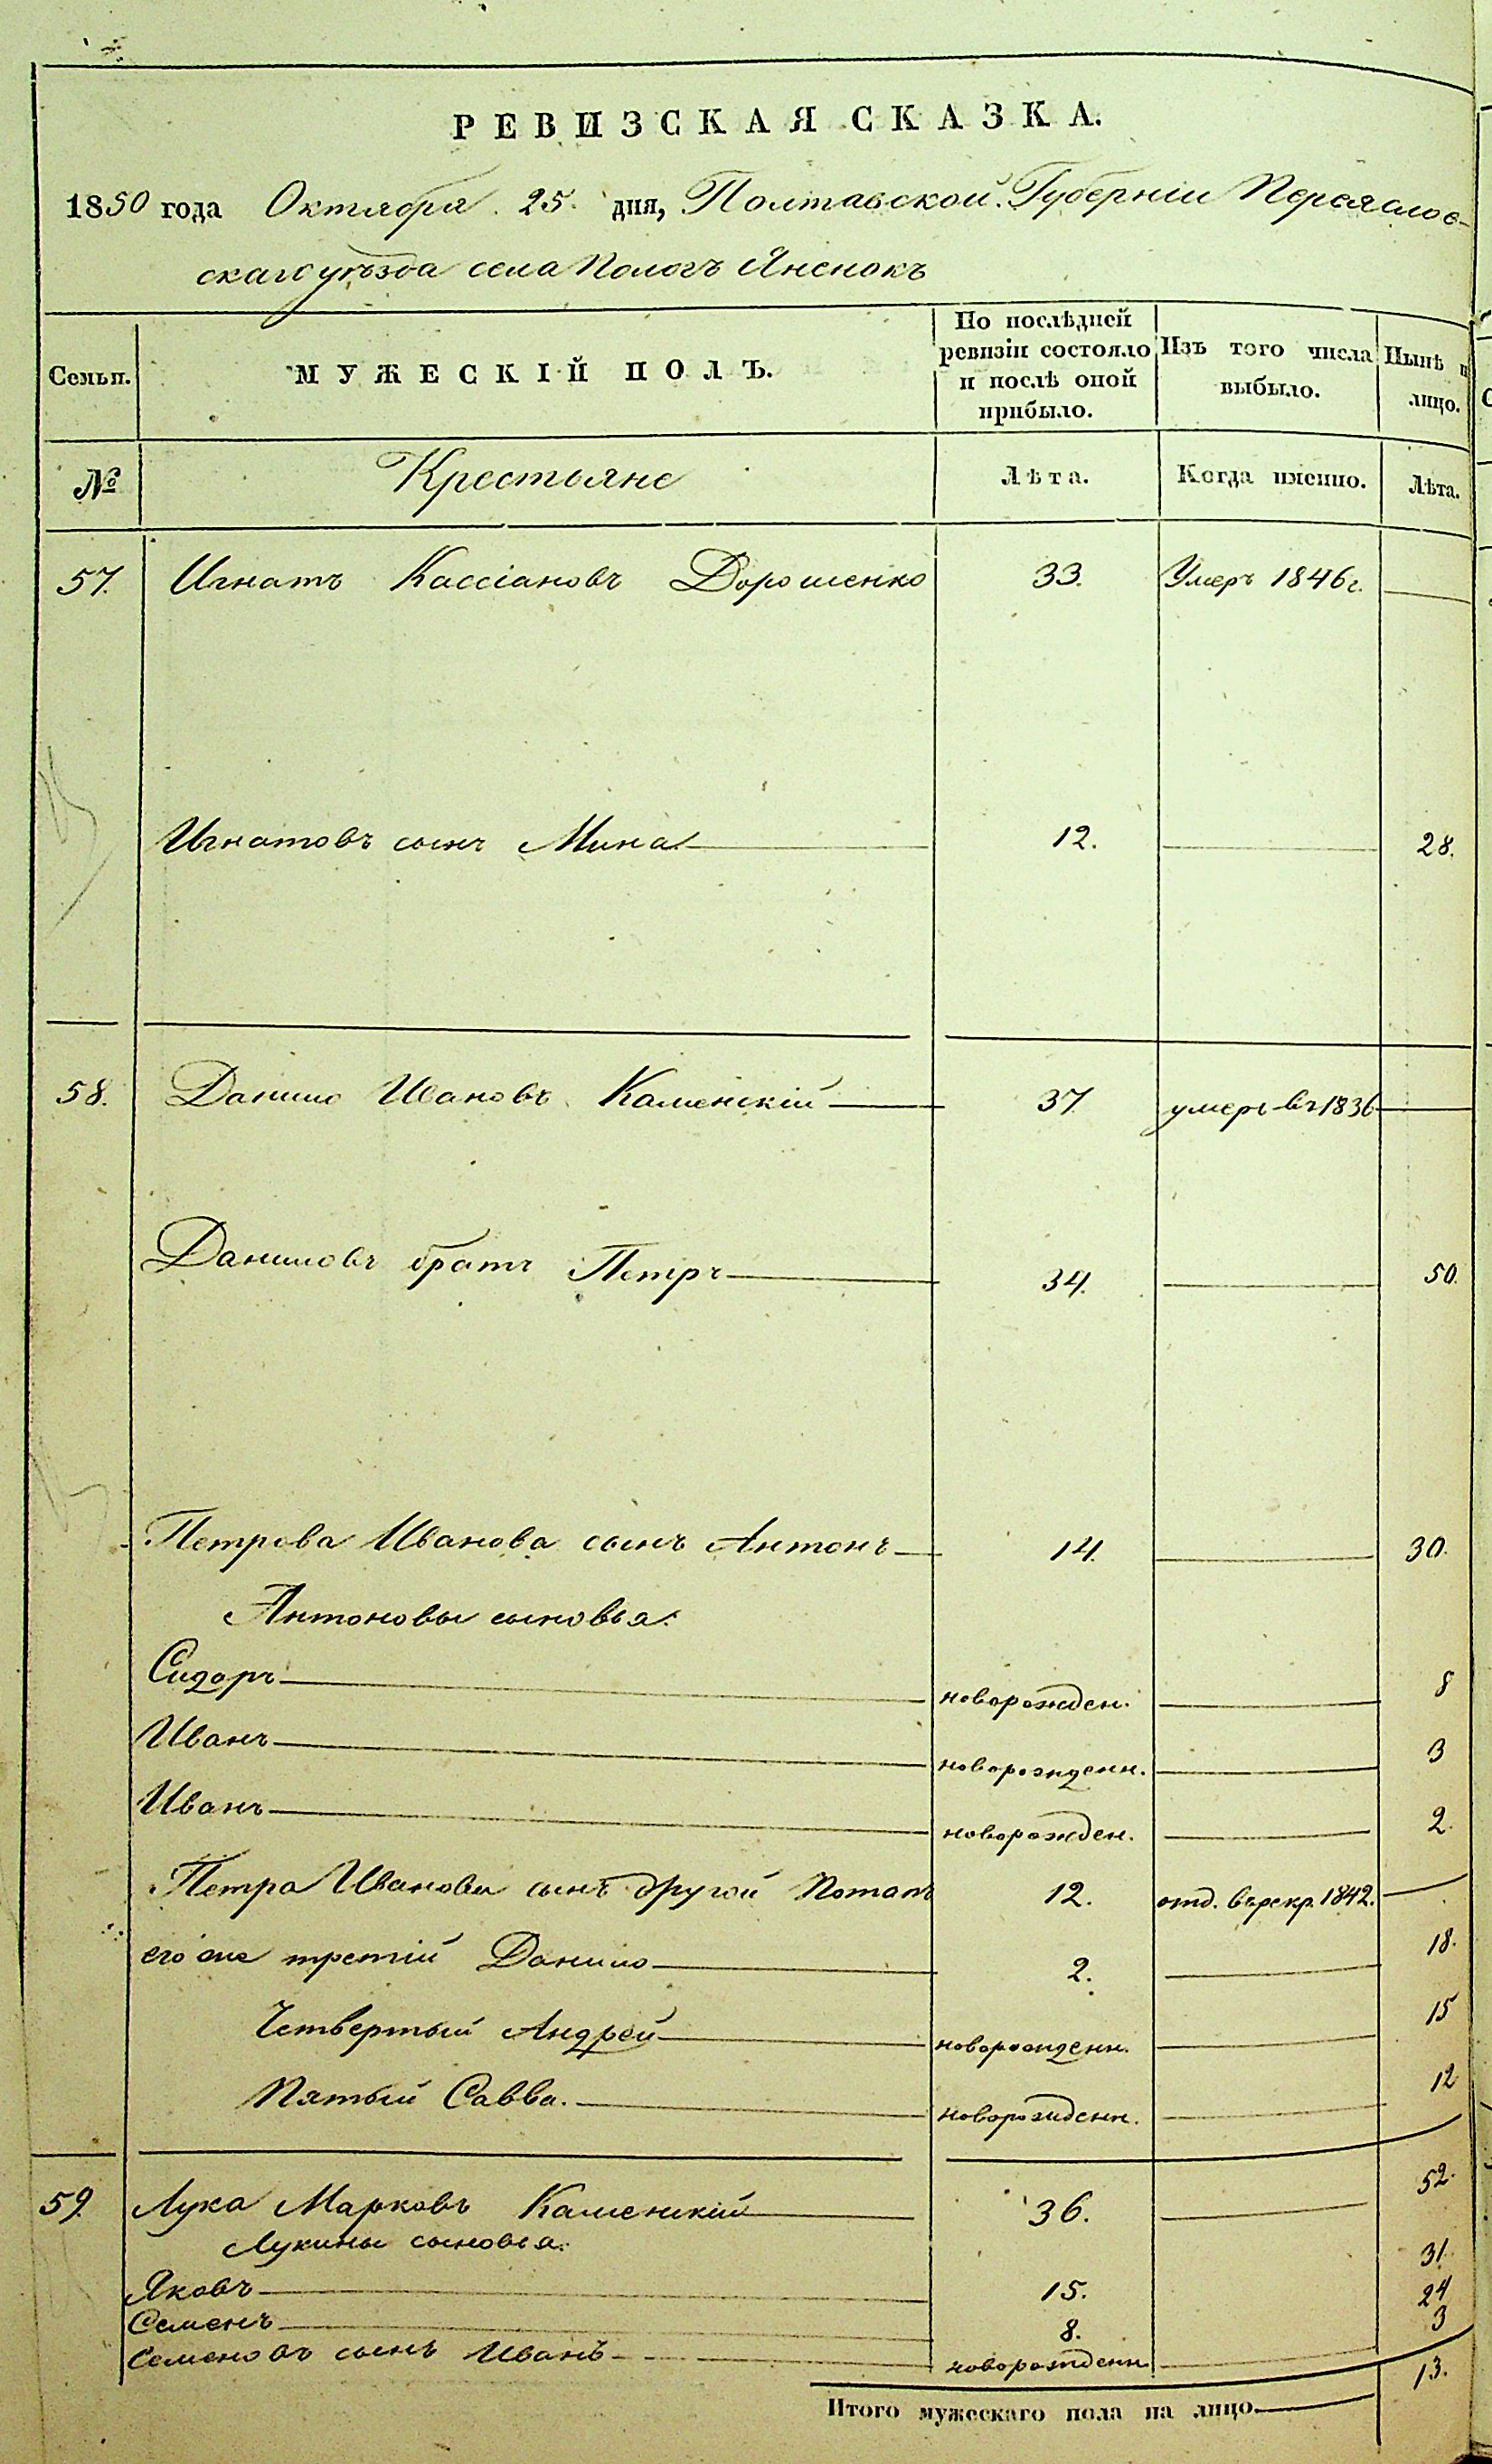 РЕВИЗСКАЯ СКАЗКА.
1850 года Октября 25 дня, Полтавской Губерніи Переяслов-
скаго уѣзда села Пологъ Яненокъ
Семьи. МУЖЕСКІЙ ПОЛЪ. По послѣдней ревизіи состояло и послѣ оной прибыло. Изъ того числа выбыло. Нынѣ н лицо.
№ Крестьяне Лѣта. Когда именно. Лѣта.
57. Игнатъ Кассіановъ Дорошенко 33. Умеръ 1846 г.
Игнатовъ сынъ Мина 12. 28.
58. Данило Ивановъ Каменскій 37 умеръ въ 1836
Даниловъ братъ Петръ 34. 50.
Петрова Иванова сынъ Антонъ 14. 30.
Антоновы сыновья:
Сидоръ новорожден. 8
Иванъ новорожденн. 3
Иванъ новорожден. 2.
Петра Иванова сынъ другой Потапъ 12. отд. въ рекр. 1842.
его же третій Данило 2. 18.
Четвертый Андрей новорожденн. 15
Пятый Савва. новорожденн. 12
59. Лука Марковъ Каменскій 36. 52.
Лукины сыновья:
Яковъ 15. 31.
Семенъ 8. 24
Семеновъ сынъ Иванъ новорожденн 3
Итого мужескаго пола на лицо 13.